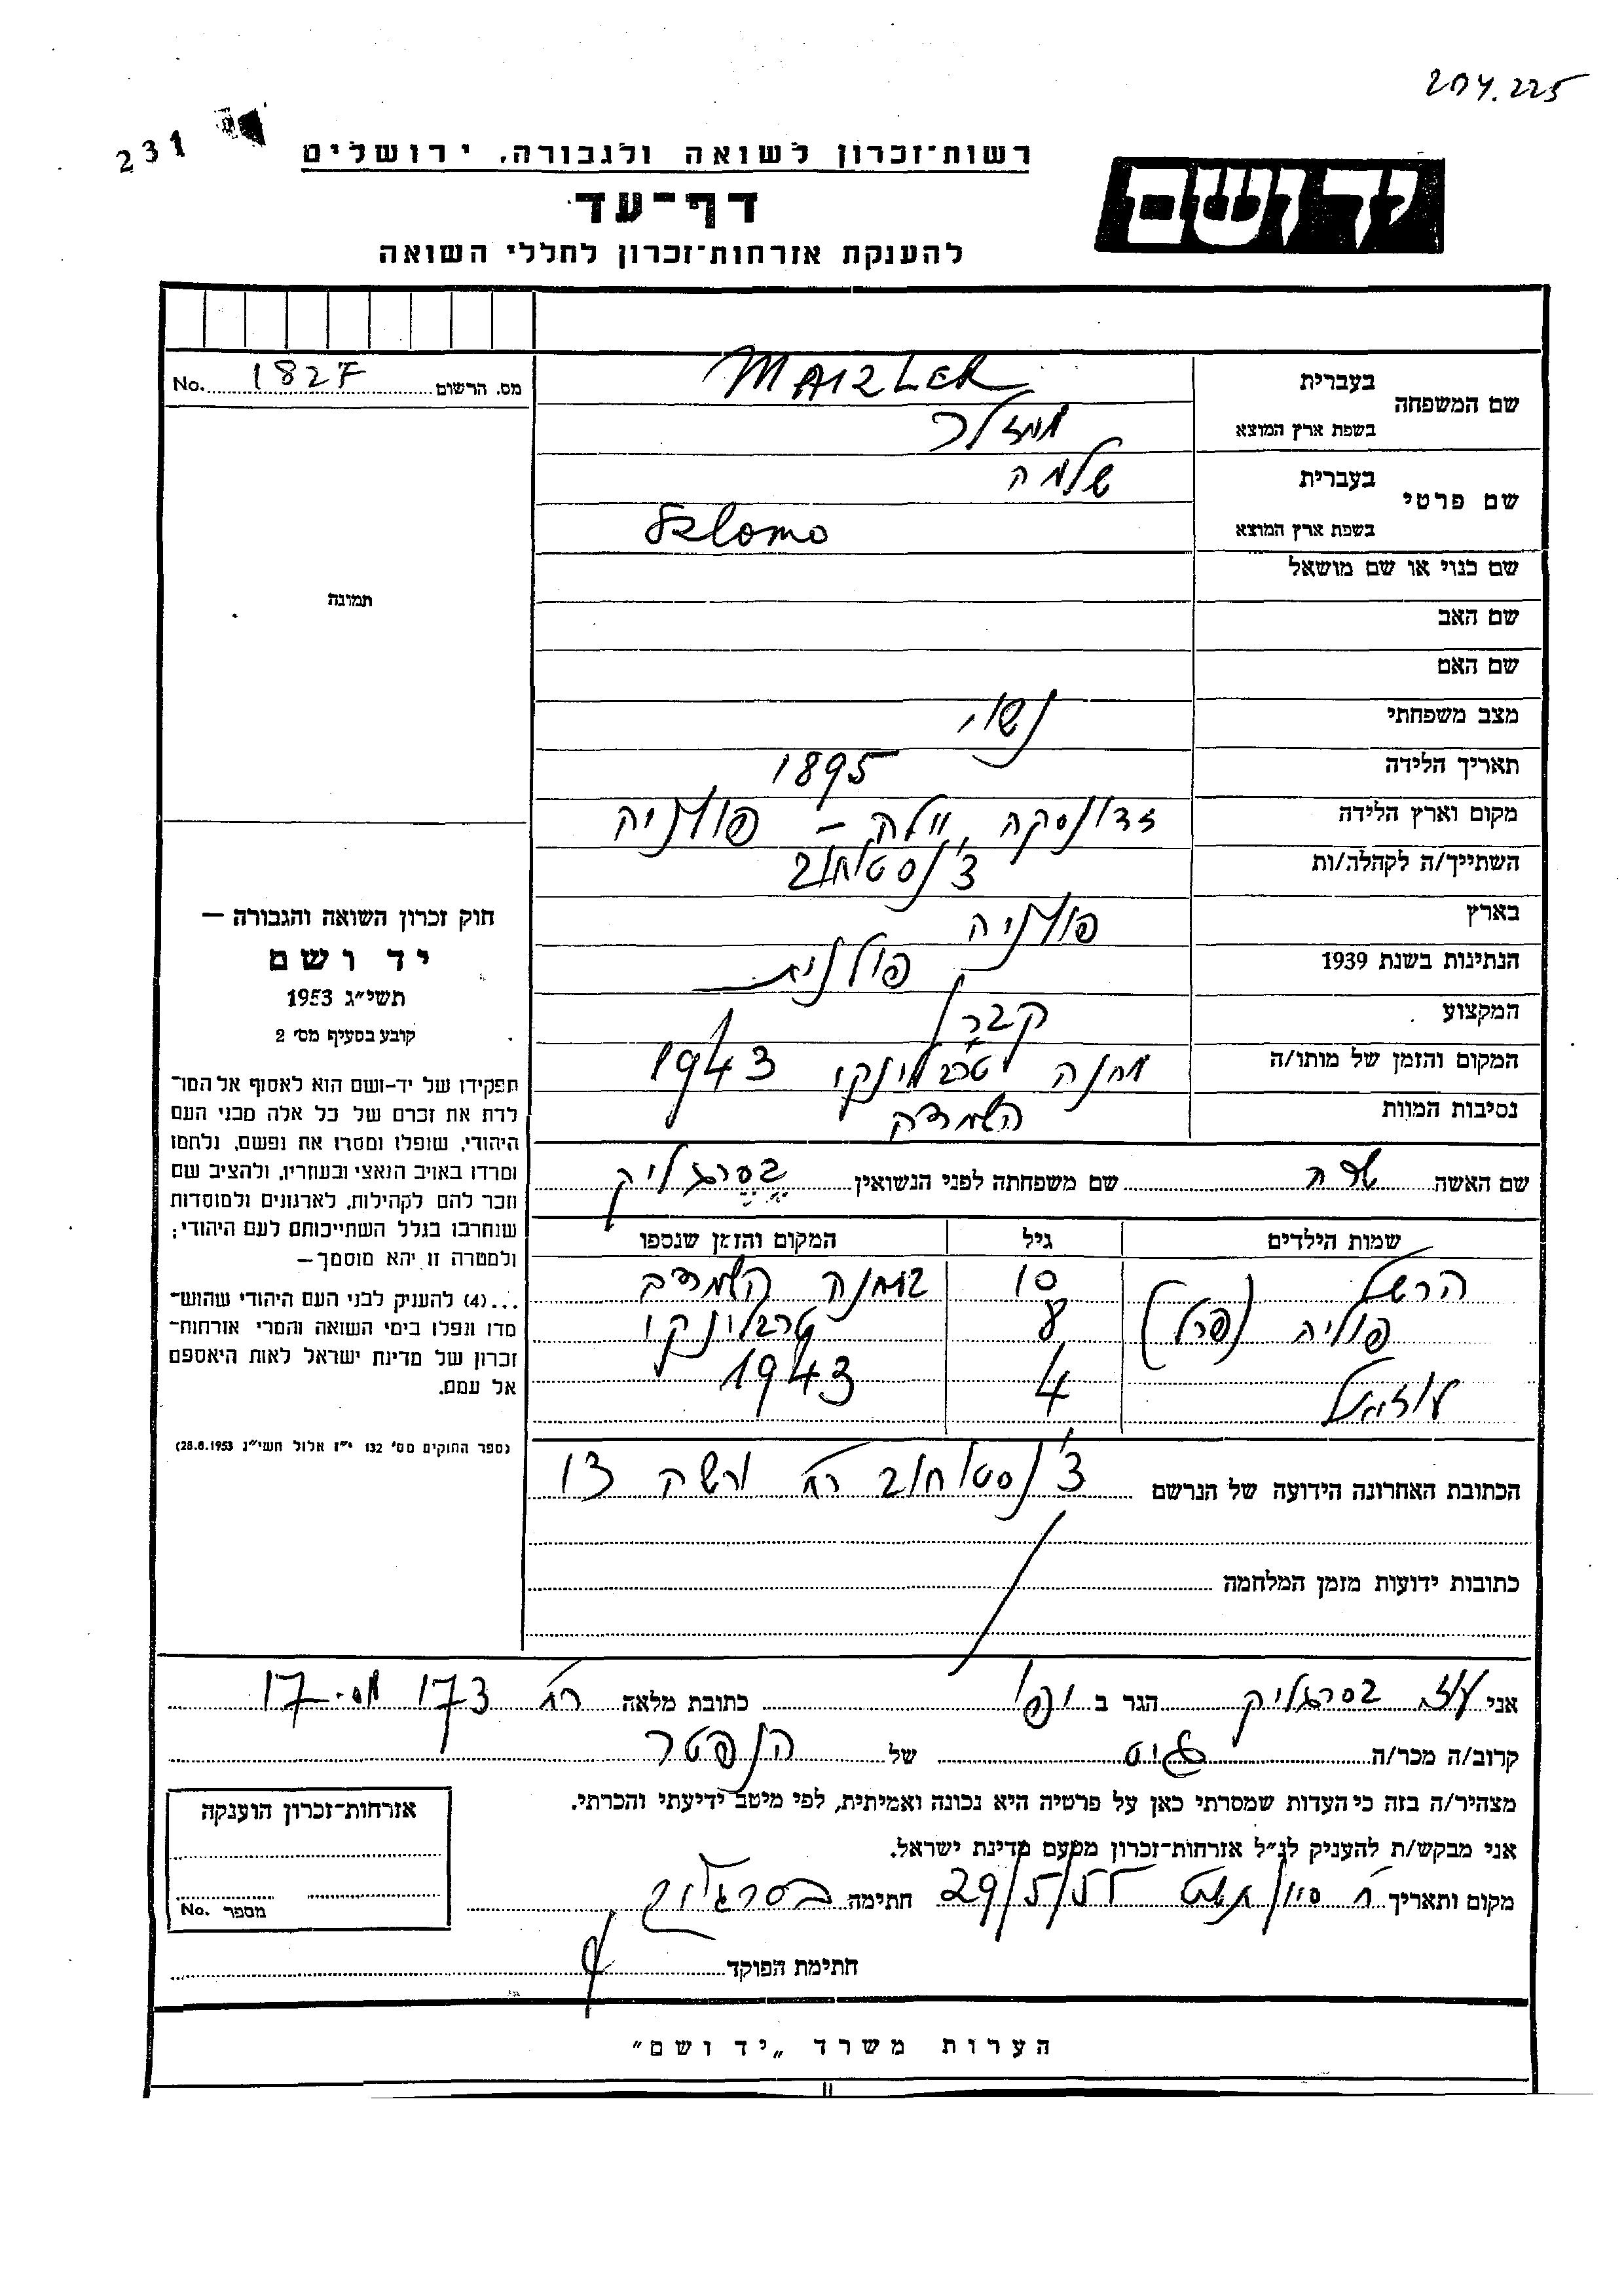 204.225
231
רשות־זכרון לשואה ולגבורה, ירושלים
יד ושם
דף־עד
להענקת אזרחות־זכרון לחללי השואה
מס. הרשום 1827 No.
שם המשפחה
בעברית MAIZLER
בשפת ארץ המוצא מייזלר
שם פרטי
בעברית שלמה
בשפת ארץ המוצא Szlomo
שם כנוי או שם מושאל
תמונה
שם האב
שם האם
מצב משפחתי נשוי
תאריך הלידה 1895
מקום וארץ הלידה זדונסקה וולה – פולניה
השתייך/ה לקהלה/ות צ'נסטוחוב
בארץ פולניה
הנתינות בשנת 1939 פולנית
המקצוע
המקום והזמן של מותו/ה מחנה טרבלינקי 1943
נסיבות המוות השמדה
חוק זכרון השואה והגבורה —
יד ושם
תשי״ג 1953
קובע בסעיף מס׳ 2
תפקידו של יד-ושם הוא לאסוף אל המו־
לדת את זכרם של כל אלה מבני העם
היהודי, שנפלו ומסרו את נפשם, נלחמו
ומרדו באויב הנאצי ובעוזריו, ולהציב שם
וזכר להם לקהילות, לארגונים ולמוסדות
שנחרבו בגלל השתייכותם לעם היהודי;
ולמטרה זו יהא מוסמך—
...(4) להעניק לבני העם היהודי שהוש־
מדו ונפלו בימי השואה והמרי אזרחות־
זכרון של מדינת ישראל לאות היאספם
אל עמם.
(ספר החוקים מס׳ 132 י״ז אלול תשי״ג 28.8.1953)
שם האשה שרה שם משפחתה לפני הנשואין בסרגליק
שמות הילדים גיל המקום והזמן שנספו
הרשל 10 במחנה השמדה
פוליה (פרל) 8 טרבלינקי
עוזיאל 4 1943
הכתובת האחרונה הידועה של הנרשם צ'נסטוחוב רח' ורשה 13
כתובות ידועות מזמן המלחמה
אני בסרגליק הגר ב יפו כתובת מלאה רח' 173 מס. 17
קרוב/ה מכר/ה גיס של הנפטר
מצהיר/ה בזה כי העדות שמסרתי כאן על פרטיה היא נכונה ואמיתית, לפי מיטב ידיעתי והכרתי.
אני מבקש/ת להעניק לנ״ל אזרחות־זכרון מטעם מדינת ישראל.
מקום ותאריך 29/5/55 חתימה בסרגליק
חתימת הפוקד
אזרחות־זכרון הוענקה
מספר No.
הערות משרד „יד ושם״